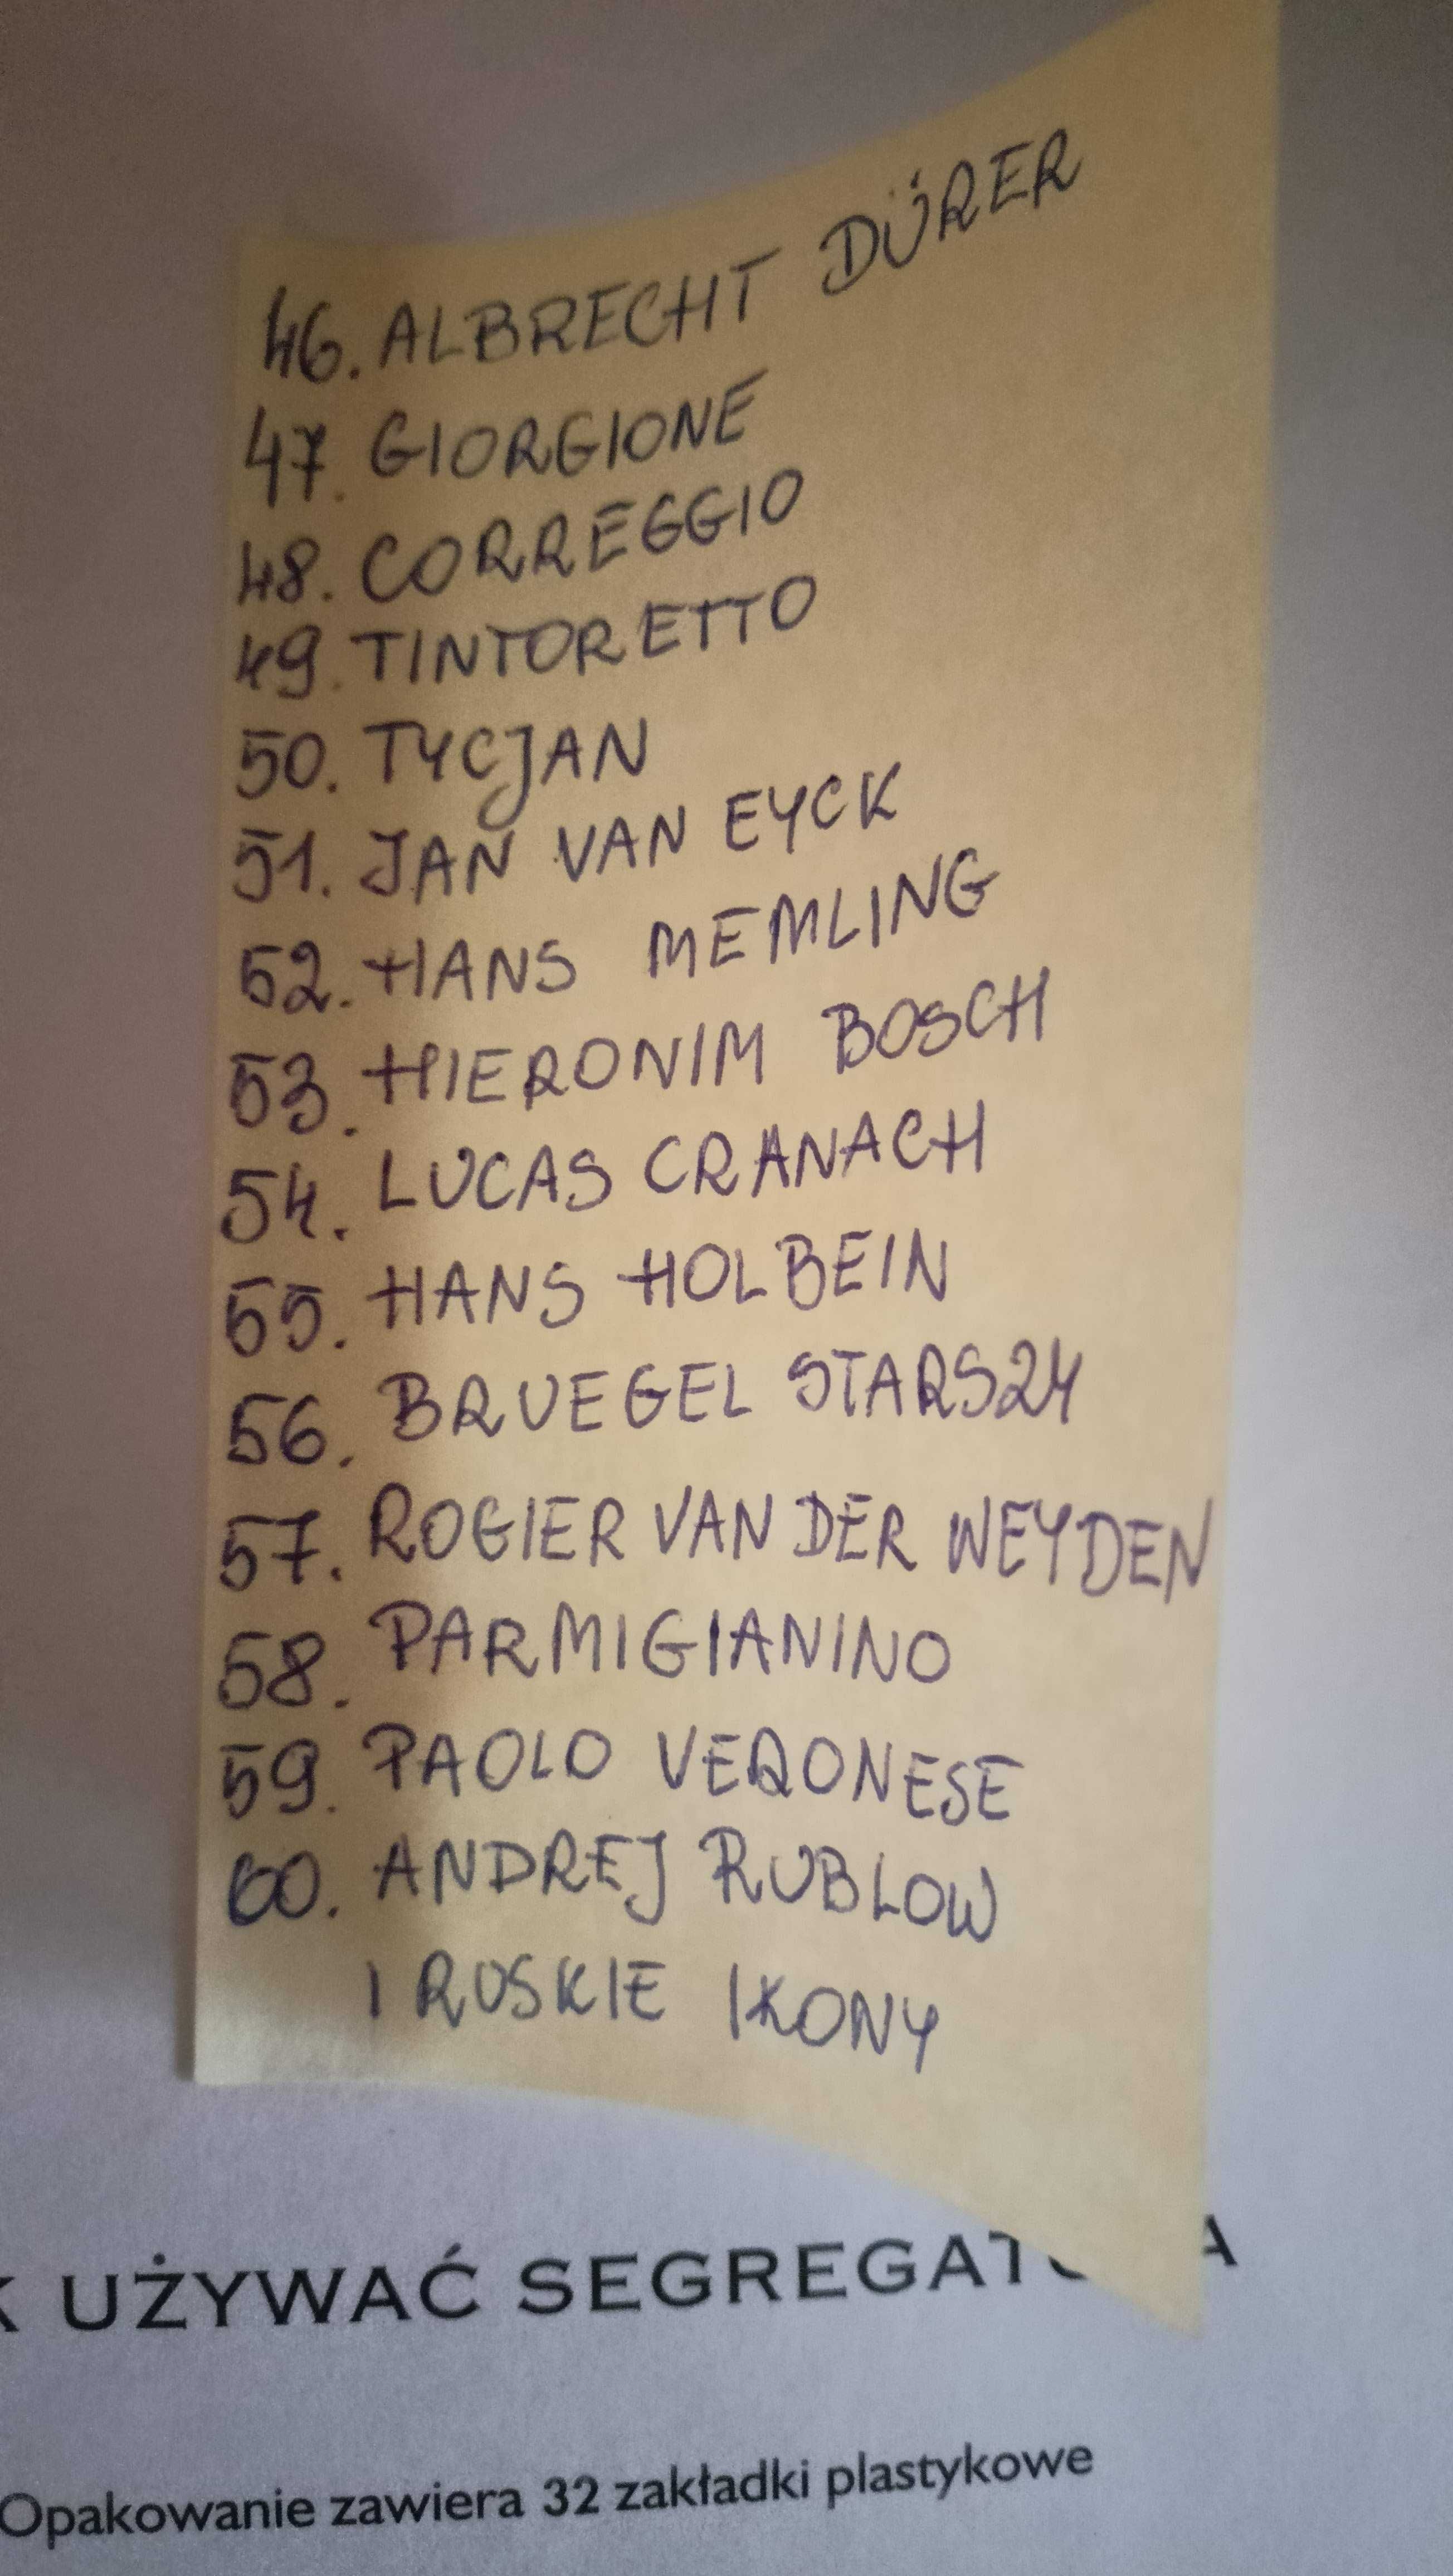 46. ALBRECHT DÜRER
47. GIORGIONE
48. CORREGGIO
49. TINTORETTO
50. TYCJAN
51. JAN VAN EYCK
52. HANS MEMLING
53. HIERONIM BOSCH
54. LUCAS CRANACH
55. HANS HOLBEIN
56. BRUEGEL STARSZY
57. ROGIER VAN DER WEYDEN
58. PARMIGIANINO
59. PAOLO VERONESE
60. ANDREJ RUBLOW
I RUSKIE IKONY
K UŻYWAĆ SEGREGATORA
Opakowanie zawiera 32 zakładki plastykowe